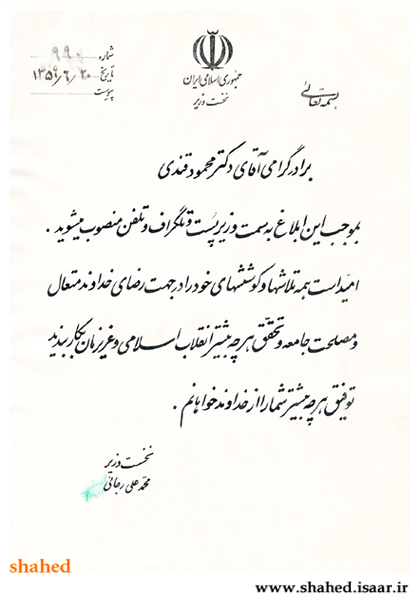 بسمه تعالی
جمهوری اسلامی ایران
نخست وزیر
شماره ۹۹۰
تاریخ ۱۳۵۹/۶/۲۰
پیوست
برادر گرامی آقای دکتر محمود قندی
بموجب این ابلاغ به سمت وزیر پست و تلگراف و تلفن منصوب میشوید .
امید است همه تلاشها و کوششهای خود را در جهت رضای خداوند متعال
و مصلحت جامعه و تحقق هرچه بیشتر انقلاب اسلامی و عزیزمان بکار ببندید
توفیق هرچه بیشتر شما را از خداوند خواهانم .
نخست وزیر
محمد علی رجائی
shahed
www.shahed.isaar.ir